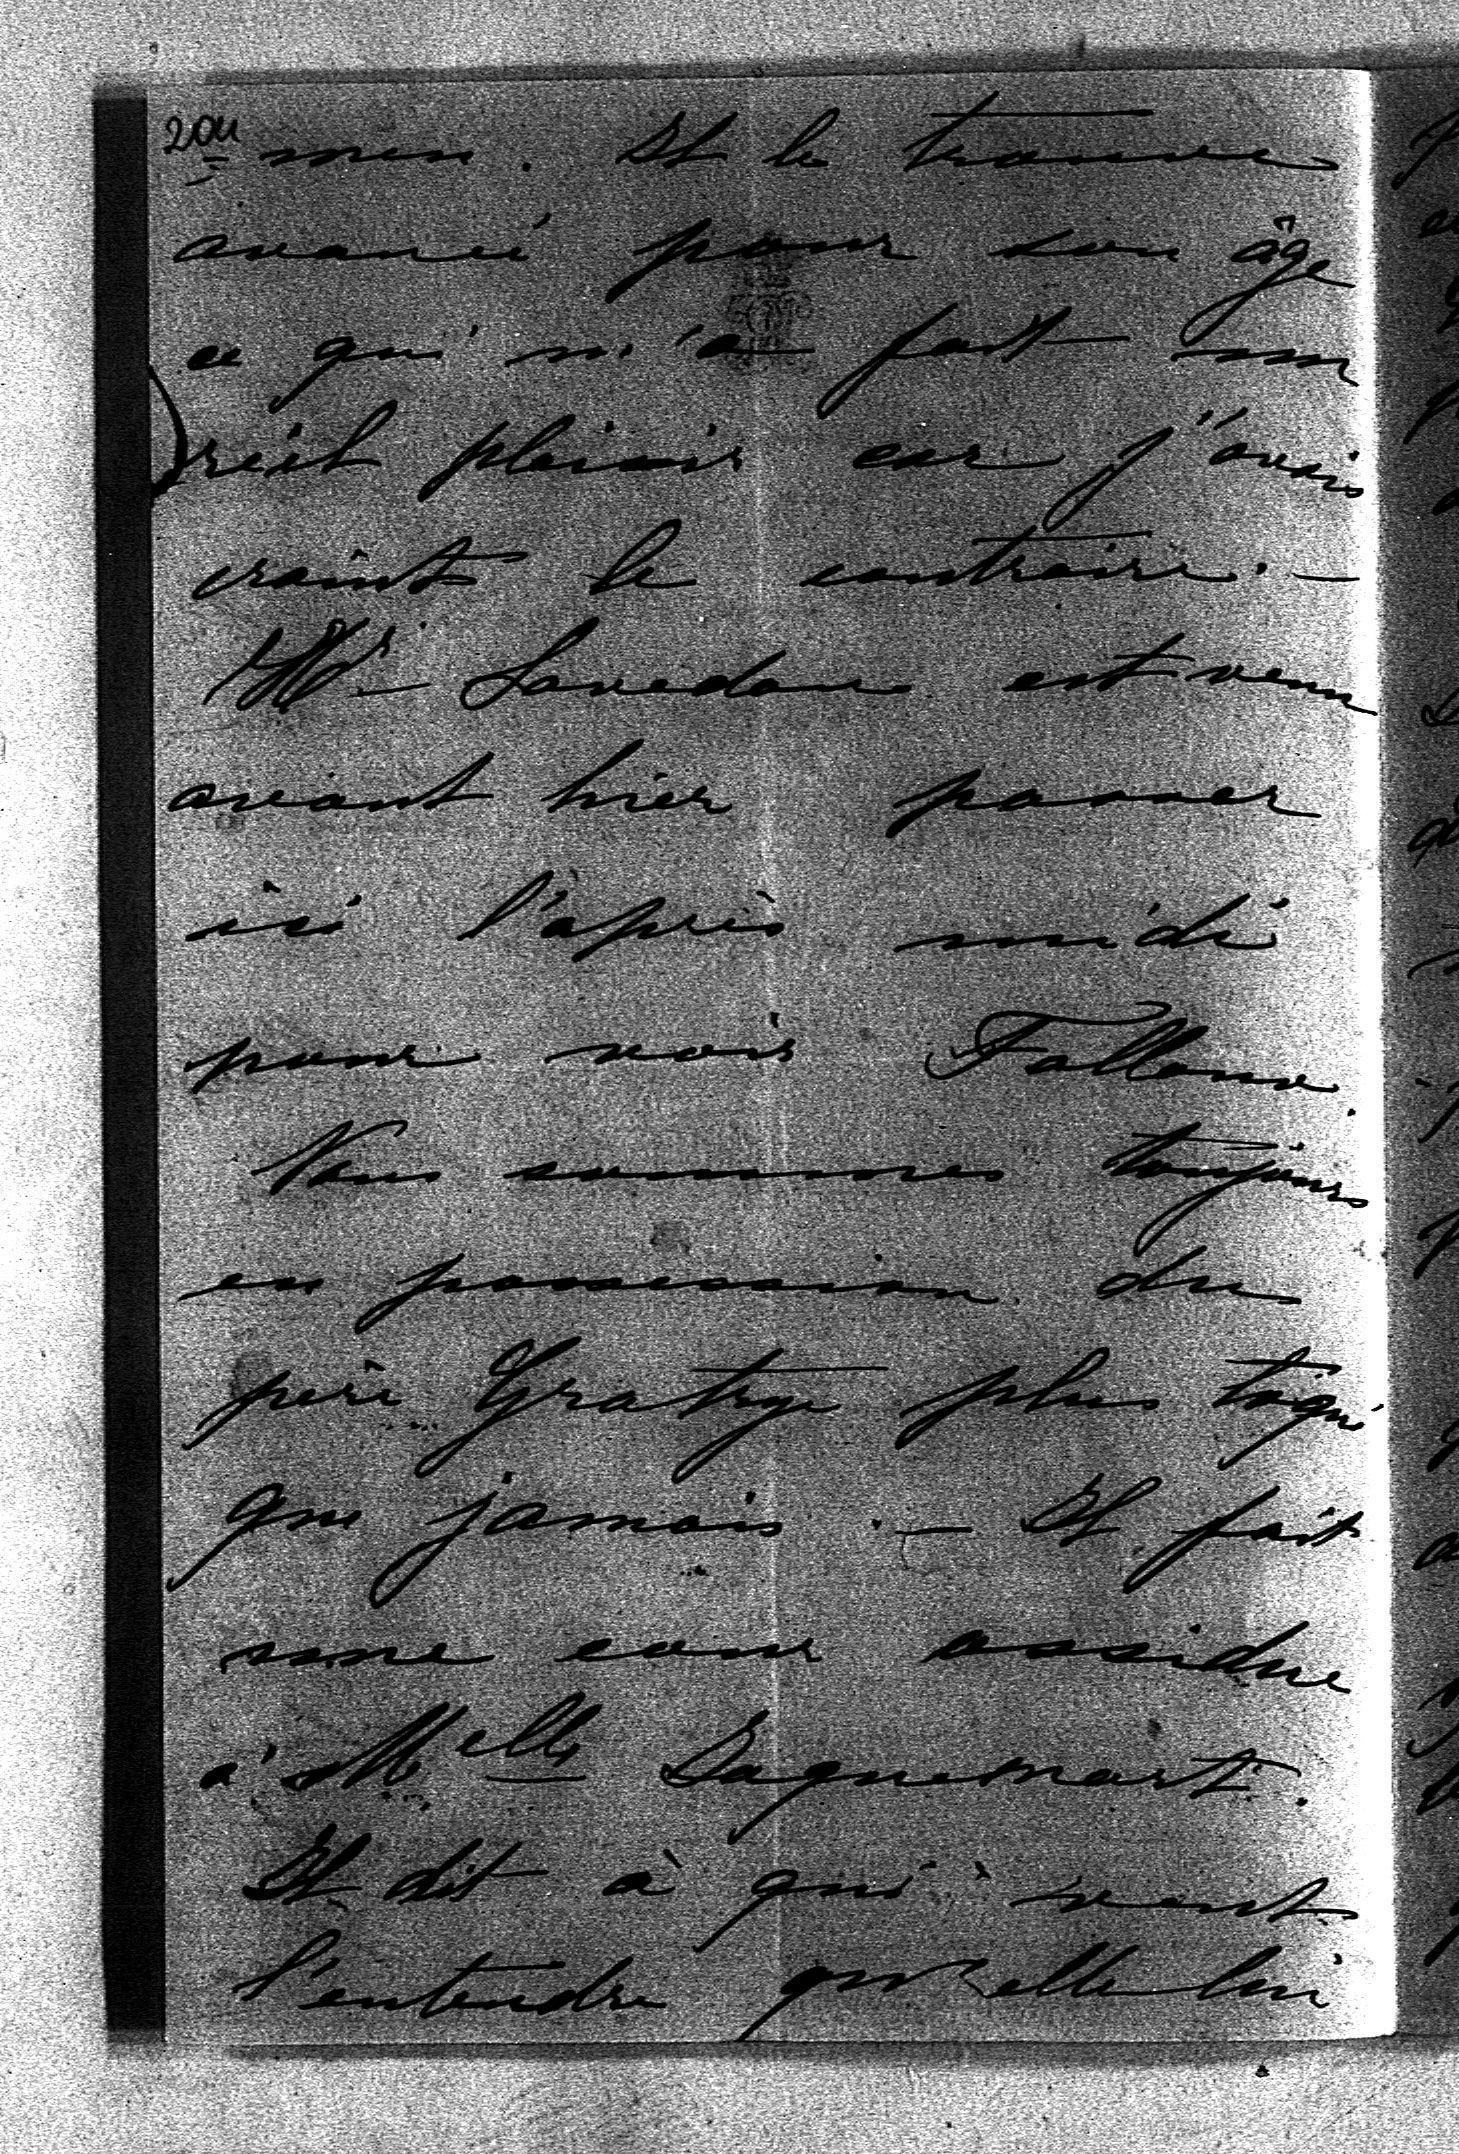 204
= men. Il le trouve
avancé pour son âge
ce qui m'a fait un
réel plaisir car j'avais
craint le contraire. —
Mr Lavedan est venu
avant hier passer
ici l'après midi
pour voir Falloux.
Nous sommes toujours
en possession du
père Gratry plus toqué
que jamais. — Il fait
une cour assidue
à Melle Jaquemart.
Il dit à qui veut
l'entendre qu'elle lui